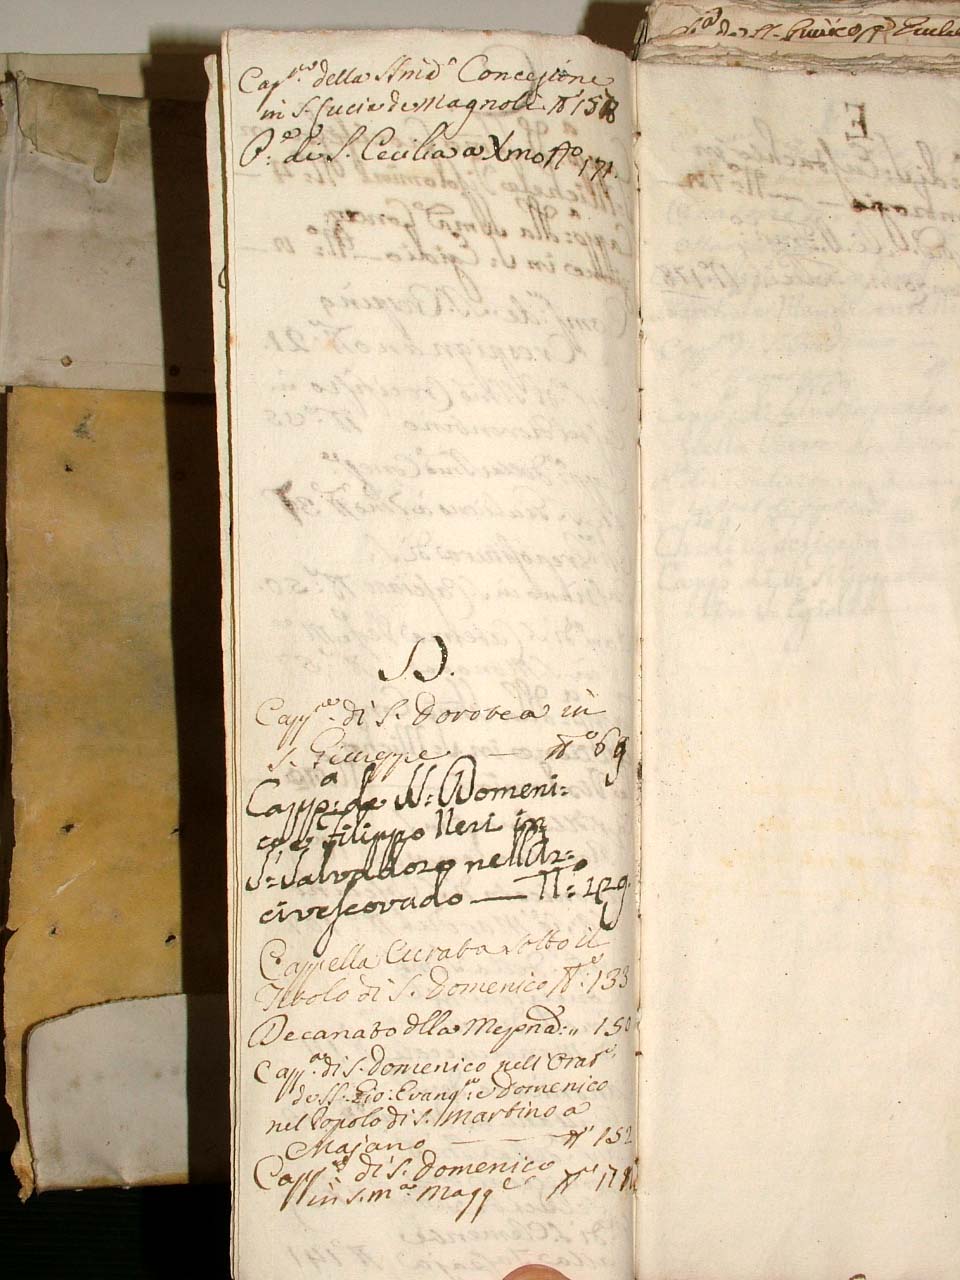 Capp.ne della SSma Concezione
in S. Lucia de Magnoli N° 158
P.a di S. Cecilia a Xmo N° 171.
D.
Capp.ne di S. Dorotea in
S. Giuseppe — N° 69
Capp.a de SS: Domeni:
co e Filippo Neri in
S: Salvadore nell'Ar:
civescovado — N° 129.
Cappella Curata sotto il
Titolo di S. Domenico N° 133
Decanato dlla 150
Capp.ne di S. Domenico nell' Orat.o
de SS. Gio: Evang.ta e Domenico
nel Popolo di S. Martino a
Majano — N° 152
Capp.ne di S. Domenico
in S. M.a Magg.e N°
E